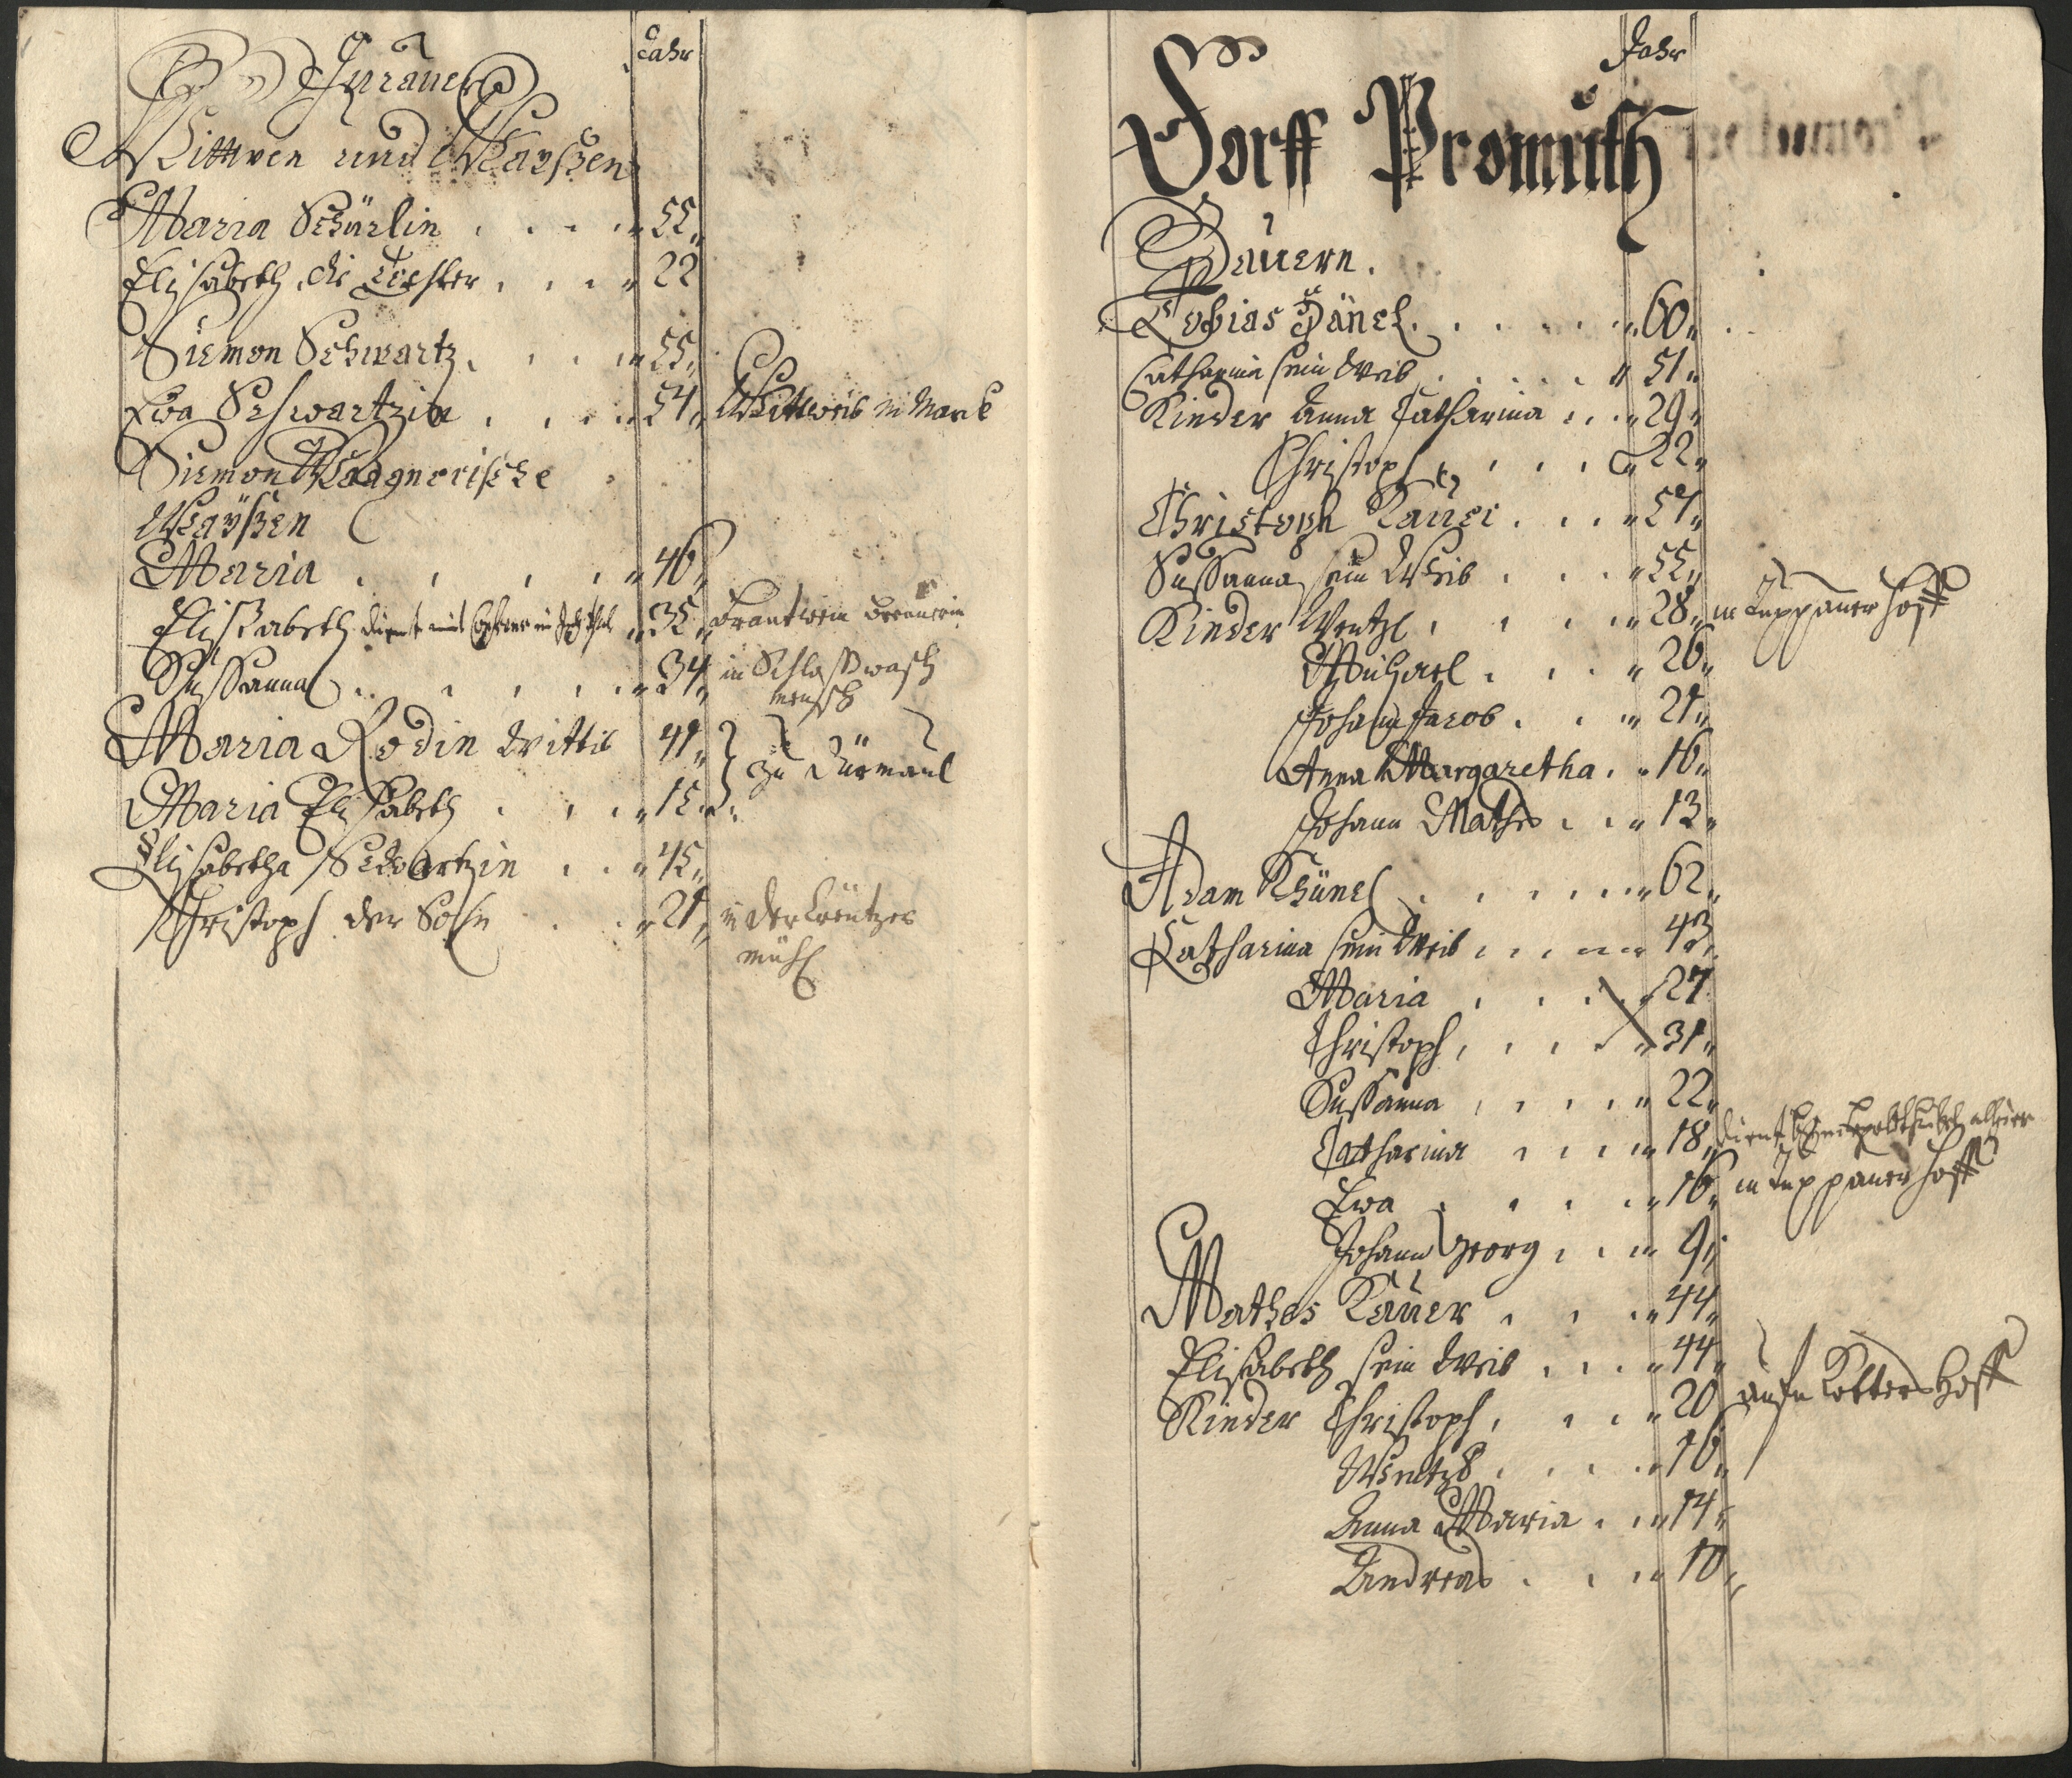 Jahr
Wittwen und Waÿßen
Maria Schärlin . . . . 55
Elisabeth, die Tochter . . . 22
Siemon Schwartz . . . 55
Eva Schwartzin . . . 54
Siemon Wagnerische
Waÿßen
Maria . . . . 46
Elisabeth dient 35 Brantwein
Sussanna . . . . 34 in Schloß wasch
mensch
Maria Rodin Wittib 41 zu Dürmaul
Maria Elisabeth . . . 15
Elisabetha Schwartzin . . 45
Christoph der Sohn . . 21 in der Creutzer
mühl
Jahr
Dorff Promuth
Bauern.
Tobias Hänel . . . . . 60
Catharina sein Weib . . . . 51
Kinder Anna Catharina . . . 29
Christoph . . . . 22
Christoph Kauer . . . 57
Sussanna sein Weib . . . 55
Kinder Wentzl . . . . 28 in Tuppauer Hoff
Michael . . . 26
Johann Jacob . . . 21
Anna Margaretha . . 16
Johann Mathes . . . 13
Adam Khünel . . . . . 62
Catharina sein Weib . . . 43
Maria . . . . 27
Christoph . . . . 31
Sussanna . . . . 22
Catharina . . . . 18 dient
Eva . . . . 16 in Tuppauer Hoff
Johann Georg . . . 9
Mathes Kauer . . . 44
Elisabeth sein Weib . . . 44
Kinder Christoph . . . 20 Hoff
Wentzl . . . . 16
Anna Maria . . . 14
Andreas . . . 10